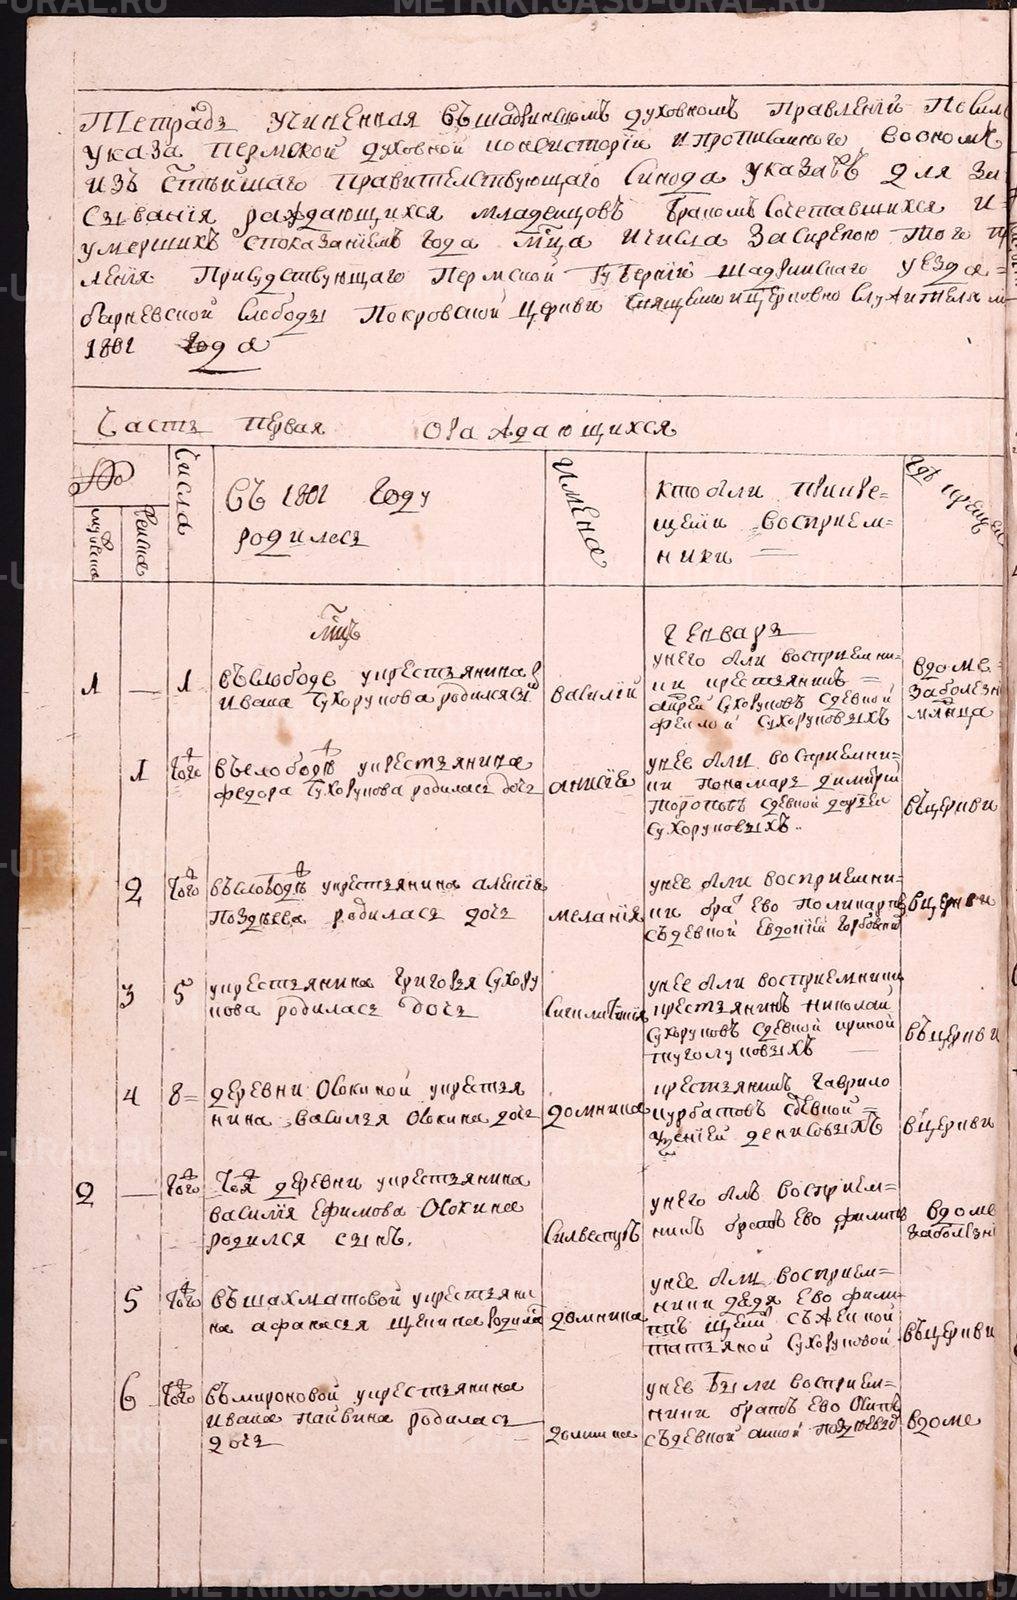 METRIKI.GASU-URAL.RU
Тетрадь учиненная въ шадринскомъ духовномъ Правленїи По силѣ
указа пермской духовной консисторїи и прописанного во ономъ
изъ Стѣйшаго правительствующаго Сѵнода указавъ для за
сывания раждающихся младенцовъ бракомъ Сочетавшихся и
умершихъ споказанїемъ года мца и числа Заскрепою того п
ленїя Присудствующаго Пермской губернїи шадринскаго уезда =
барневской Слободы Покровской Церкви Священно и церковно Служителями
1801 Года
Часть первая О раждающихся
№
мужеска
женска
Числа
Въ 1801 Году
родилесь
имена
Кто были Принре=
щенїи восприем=
ники
гдѣ крещен
мцъ
генварь
1 — 1
въ слободе у крестьянина
Ивана Сухорукова родился сїй
василїй
у него были восприемни=
ки крестьянинъ =
андрей Сухоруковъ С девкой
феклой Сухоруковыхъ
вдоме
за болезн
млнца
1 того
въ слободѣ у крестьянина
федора Сухорукова родилась дочь
анисїе
у нее были восприемни=
ки пономарь димитрїй
Тороповъ с девкой дарьей
Сухоруковыхъ..
въ церкви
2 того
въ слободѣ у крестьянина алексѣя
Поздѣева родилась дочь
меланїя
у нее были восприемни=
ки бра ево поликарпъ
съ девкой Евдокїей
вцеркви
3 5
у крестьянина Григорья Сухору
кова родилась дочь
у нее были восприемники
крестьянинъ николай
Сухоруковъ с девкой ириной
въ церкви
4 8=
деревни Оскиной у крестья
нина василья Оскина дочь
домника
крестьянинъ гаврило
курбатовъ с девкой =
денисовыхъ
в церкви
2 — того
тоя деревни у крестьянина
василїя Ефимова Оскина
родился сынъ.
Силвестръ
у него блъ восприем=
никъ братъ Ево филипъ
вдоме
за болезн
5 того
въ шахматовой у крестьяни
на афанасья щекина родилась
домника
у нее были восприем=
ники дядя Ево фили
пъ щекинъ съ женкой
татьяной Сухоруковой
въ церкви
6 того
въ мироновой у крестьянина
Ивана пайвина родилась
дочь
домника
у нее были восприем=
ники братъ Ево Осипъ
съ девкой анной
вдоме
METRIKI.GASU-URAL.RU